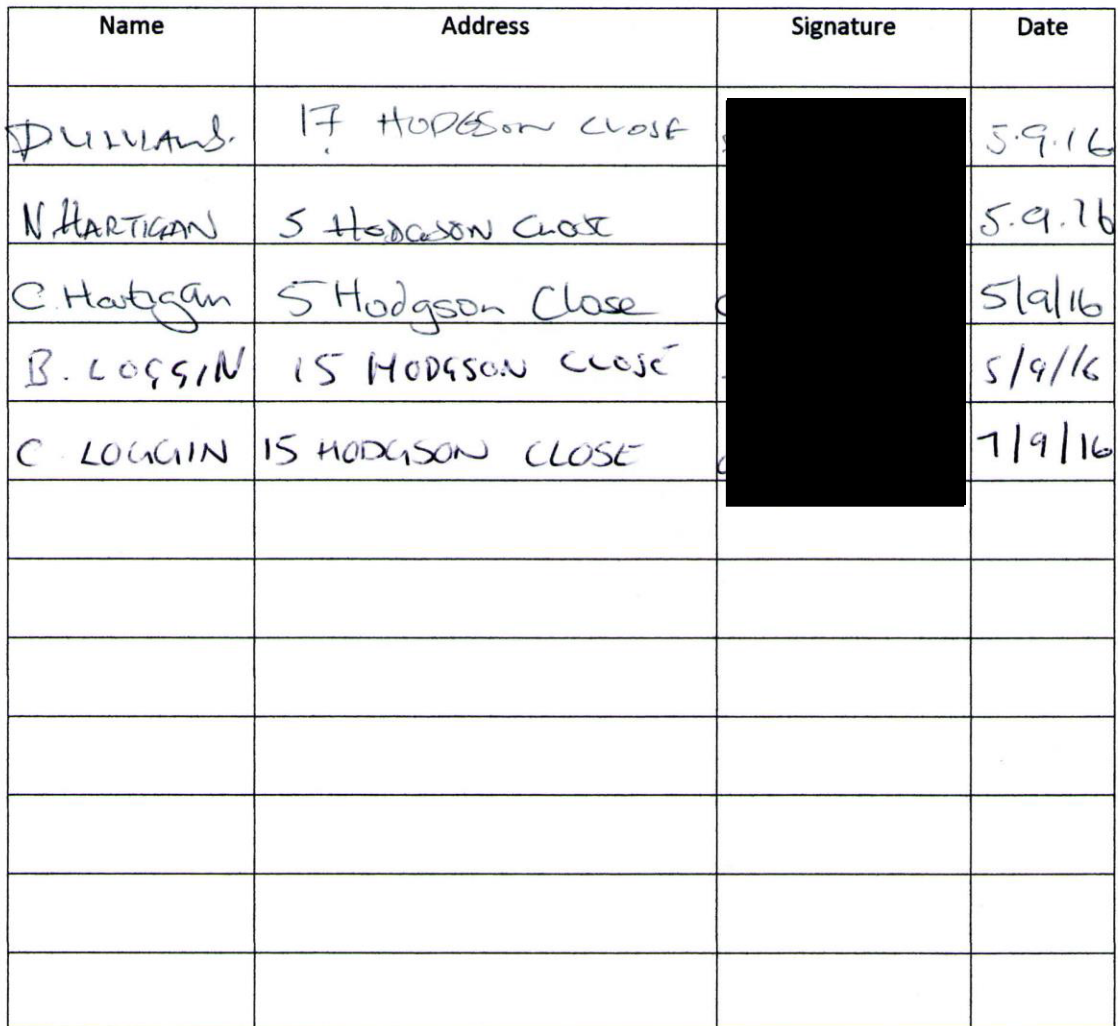 Name Address Signature Date
17 HODGSON CLOSE 5.9.16
N HARTIGAN 5 HODGSON CLOSE 5.9.16
C. Hartigan 5 Hodgson Close 5/9/16
B. LOGGIN 15 HODGSON CLOSE 5/9/16
C LOGGIN 15 HODGSON CLOSE 7/9/16